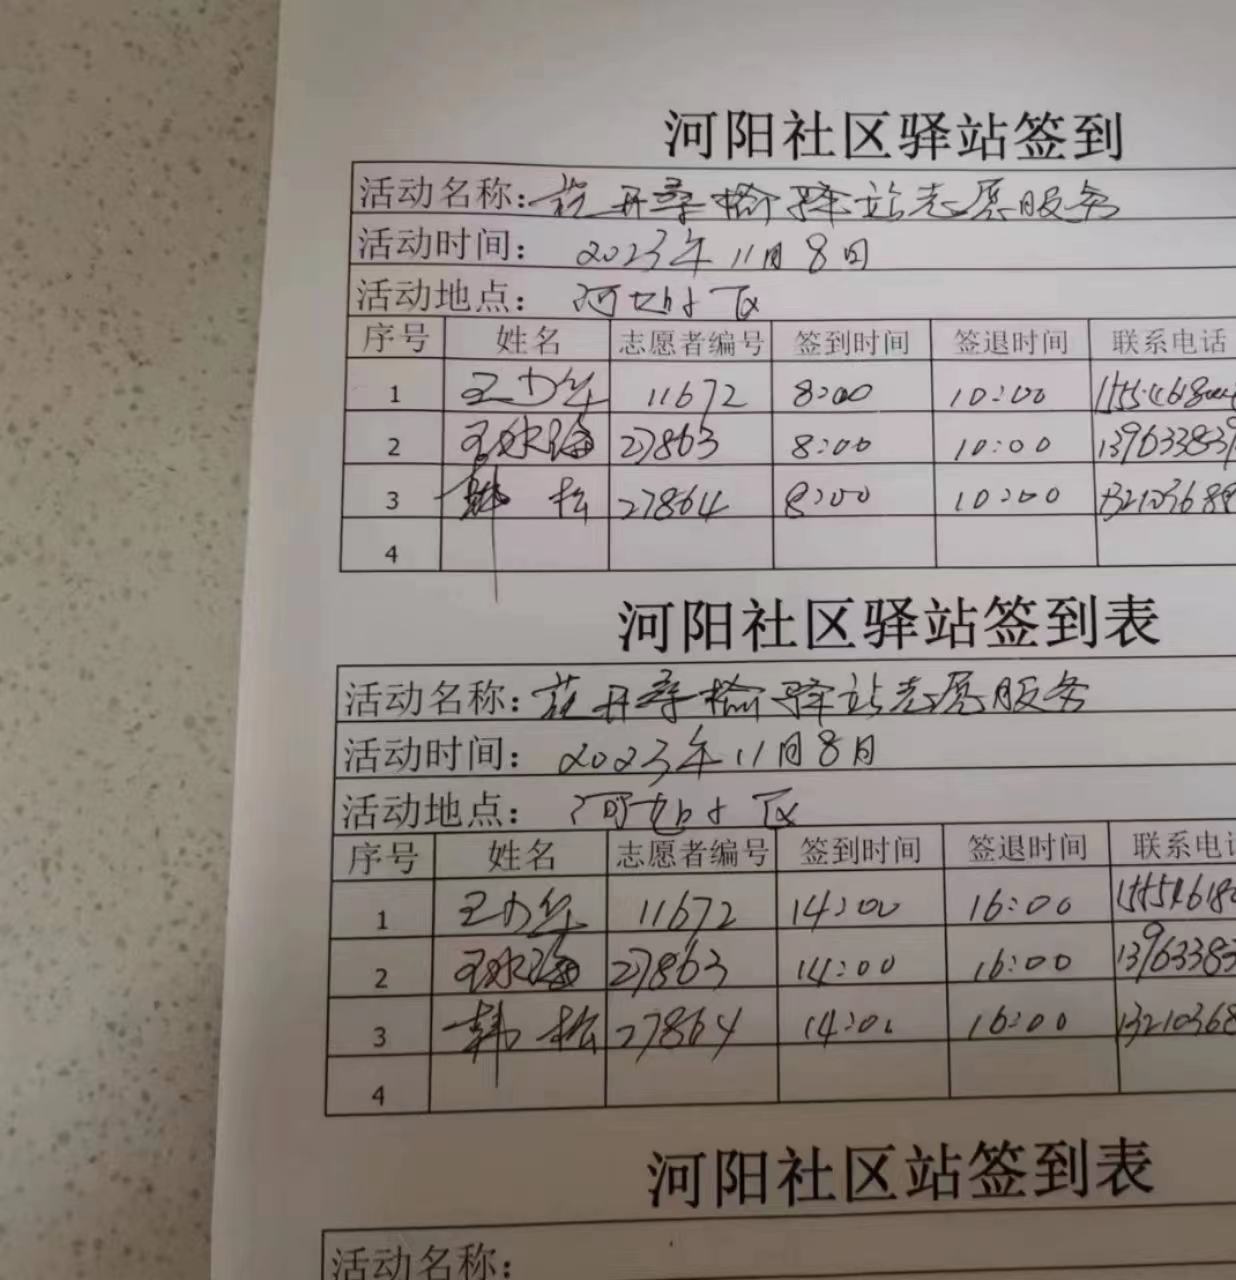 河阳社区驿站签到
活动名称:花开桑榆驿站志愿服务
活动时间: 2023年11月8日
活动地点: 河阳社区
序号 姓名 志愿者编号 签到时间 签退时间 联系电话
1 11672 8:00 10:00
2 27863 8:00 10:00 139633839
3 韩 松 27864 8:00 10:00
4
河阳社区驿站签到表
活动名称:花开桑榆驿站志愿服务
活动时间: 2023年11月8日
活动地点: 河阳社区
序号 姓名 志愿者编号 签到时间 签退时间 联系电
1 11672 14:00 16:00
2 27863 14:00 16:00 13963383
3 韩 松 27864 14:00 16:00 13210368
4
河阳社区站签到表
活动名称: